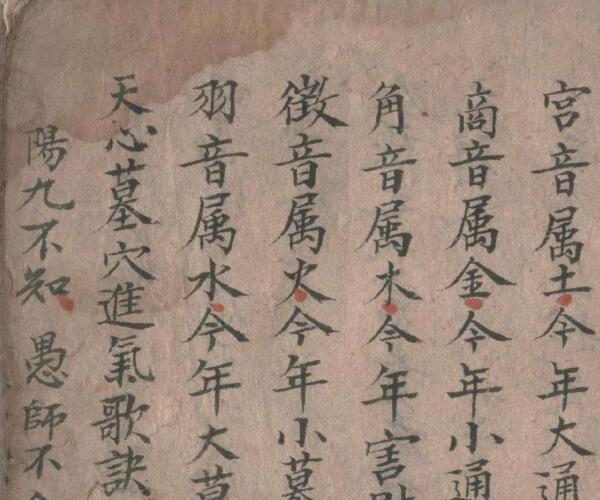 宮音属土今年大通
商音属金今年小通
角音属木今年害
徵音属火今年小墓
羽音属水今年大墓
天心墓穴進氣歌訣
陽九不知 愚師不